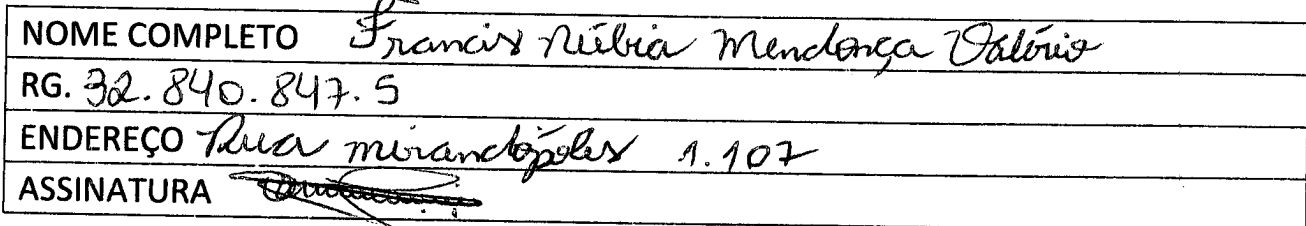 NOME COMPLETO Francis Núbia Mendonça Valério
RG. 32.840.847.5
ENDEREÇO Rua mirandópoles 1.107
ASSINATURA